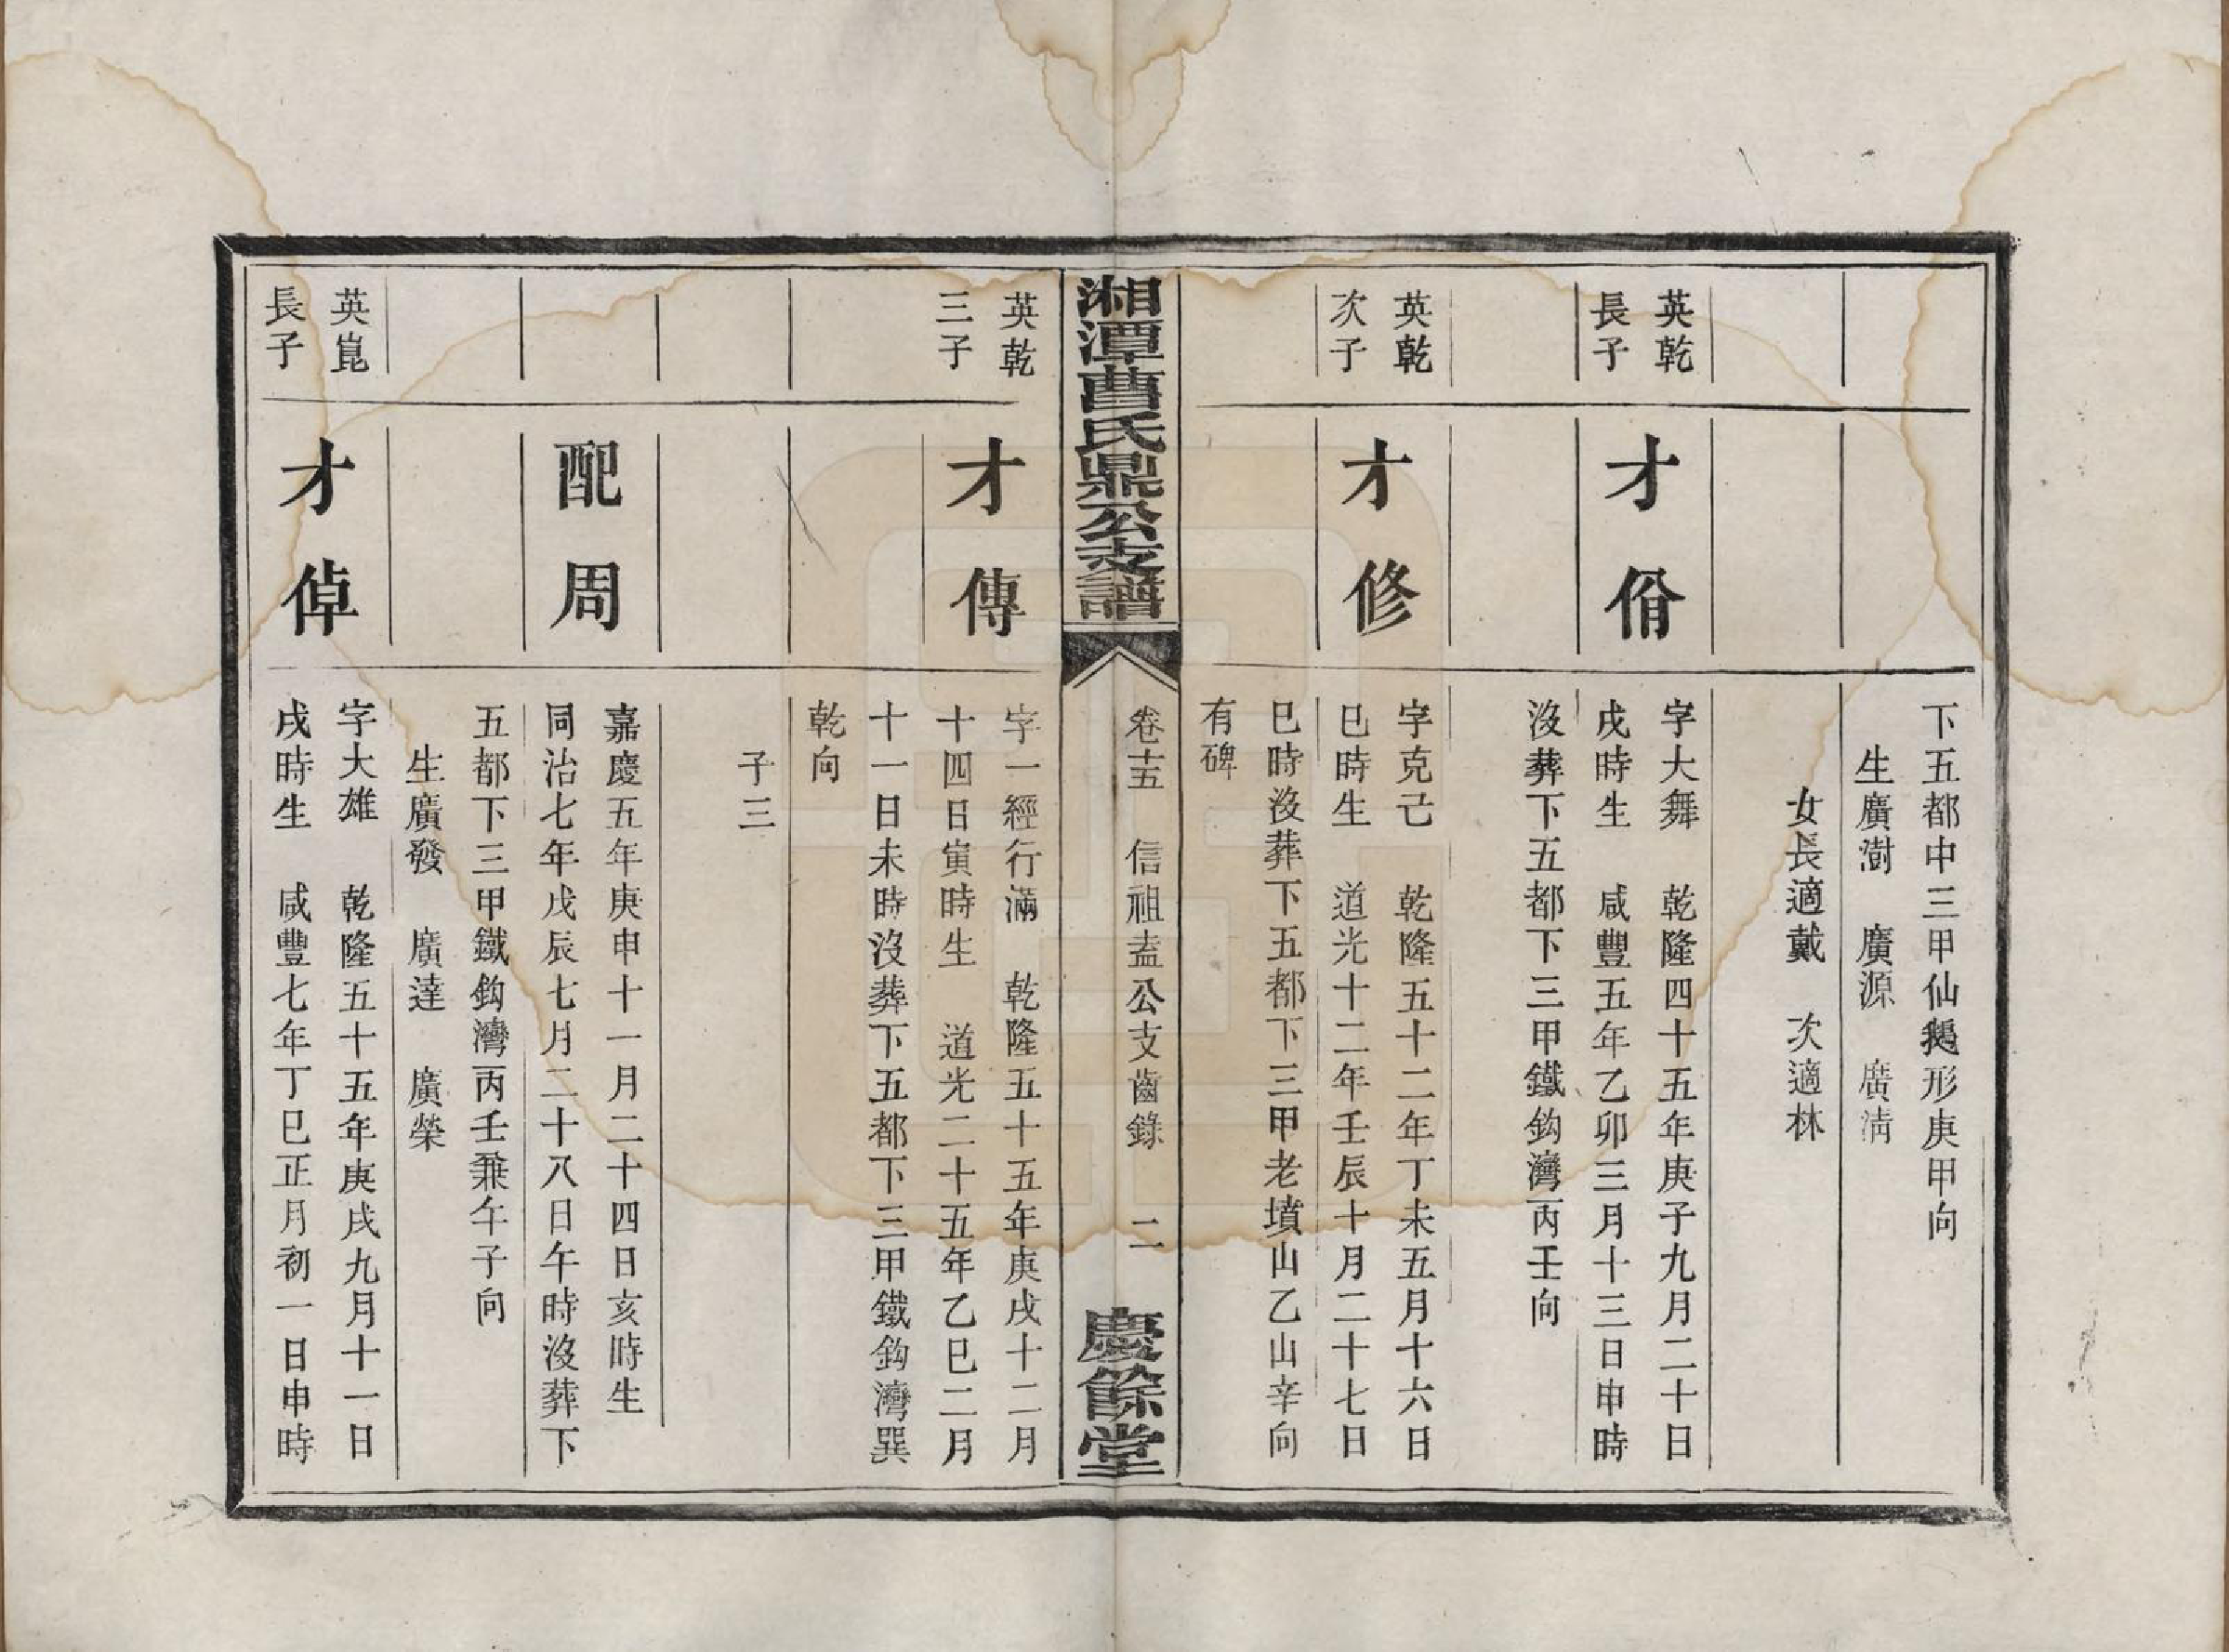 下五都中三甲仙鵝形庚甲向
生廣澍　廣源　廣清
女長適戴　次適林
英乾
長子
才佾
字大舞　乾隆四十五年庚子九月二十日
戌時生　咸豐五年乙卯三月十三日申時
沒葬下五都下三甲鐵鈎灣丙壬向
英乾
次子
才修
字克己　乾隆五十二年丁未五月十六日
巳時生　道光十二年壬辰十月二十七日
巳時沒葬下五都下三甲老墳山乙山辛向
有碑
湘潭曹氏鼎公支譜
卷十五　信祖盍公支齒錄　二
慶餘堂
英乾
三子
才傳
字一經行滿　乾隆五十五年庚戌十二月
十四日寅時生　道光二十五年乙巳二月
十一日未時沒葬下五都下三甲鐵鈎灣巽
乾向
子三
配周
嘉慶五年庚申十一月二十四日亥時生
同治七年戊辰七月二十八日午時沒葬下
五都下三甲鐵鈎灣丙壬兼午子向
生廣發　廣達　廣榮
英崑
長子
才倬
字大雄　乾隆五十五年庚戌九月十一日
戌時生　咸豐七年丁巳正月初一日申時